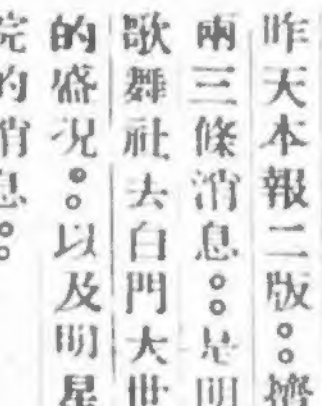 昨天本報二版。。擠
兩三條消息。。是明
歌舞社去白門大世
的盛况。。以及明星
院的消息。。